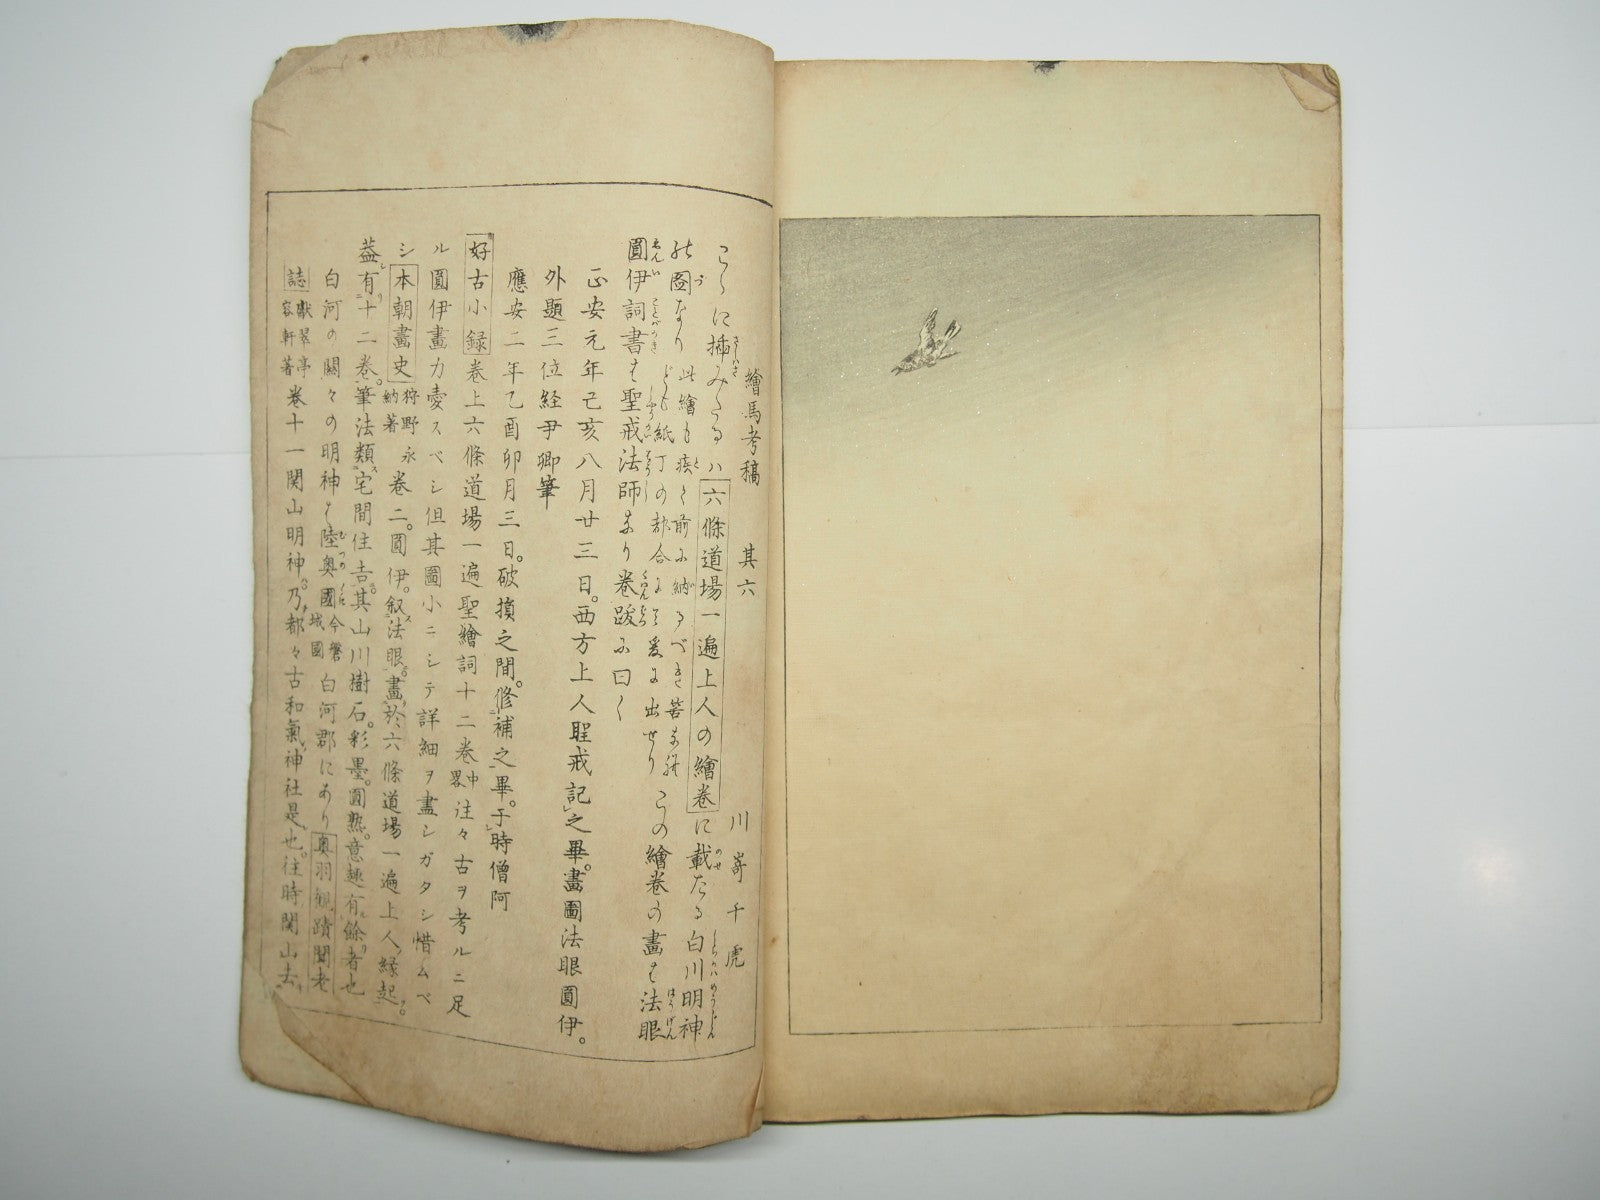 繪馬考稿 其六 川嵜千虎
こゝに插みたるハ六條道場一遍上人の繪卷に載たる白川明神
の圖なり此繪も疾く前に納るべき筈なれ
ども紙丁の都合により爰に出せりこの繪卷の畫は法眼
圓伊詞書は聖戒法師なり卷跋に曰く
正安元年己亥八月廿三日。西方上人聖戒記之畢。畫圖法眼圓伊。
外題三位経尹卿筆
應安二年乙酉卯月三日。破損之間。修補之畢。于時僧阿
好古小録卷上六條道場一遍聖繪詞十二卷中畧往々古ヲ考ルニ足
ル圓伊畫力愛スベシ但其圖小ニシテ詳細ヲ盡シガタシ惜ムベ
シ本朝畫史狩野永納著卷二。圓伊。叙法眼。畫於六條道場一遍上人縁起。
葢有十二卷。筆法類宅間住吉。其山川樹石。彩墨。圓熟。意趣有餘者也
白河の關々の明神は陸奥國今磐城國白河郡にあり奥羽観蹟聞老
誌獻翠亭容軒著卷十一関山明神乃都々古和氣神社是也。往時関山去